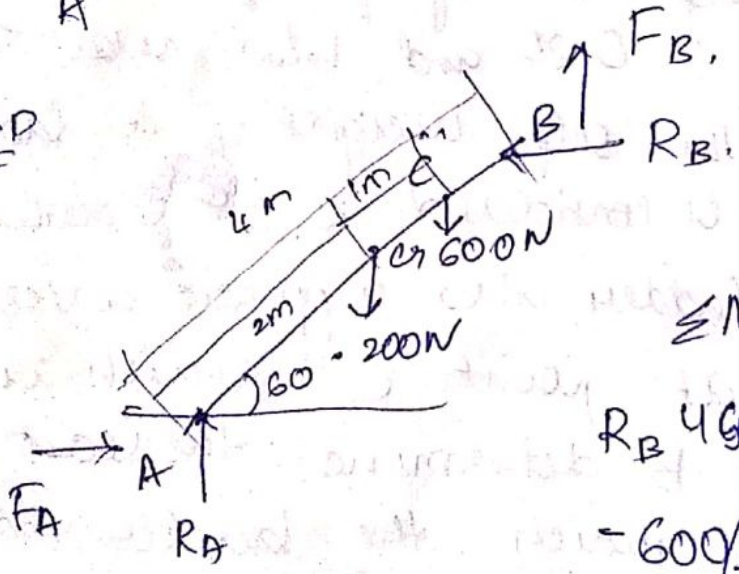 A
D
F_B.
B
R_B.
m
1m
C
4 m
G 600N
2m
200N
60°
ΣM
R_B 4S
-600
A
F_A
R_A